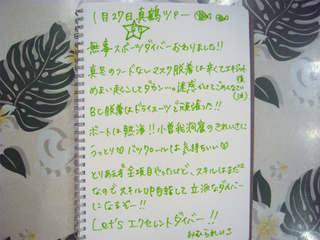 1月27日真鶴ツアー
無事スポーツダイバーおわりました!!
真冬のフードなしマスク脱着は辛くてエキジット後
めまい起こしてダウン…。迷惑かけてごめんなさい(涙)
BC脱着はドライスーツで頑張った!!
ボートは熱海!!小曽我洞窟のきれいさに
うっとり♡バックロールは気持ちいい♡
とりあえず全項目やったけど、スキルはまだまだ
なのでスキルUP目指して立派なダイバー
になるぞー!!
Let's エクセレントダイバー!!